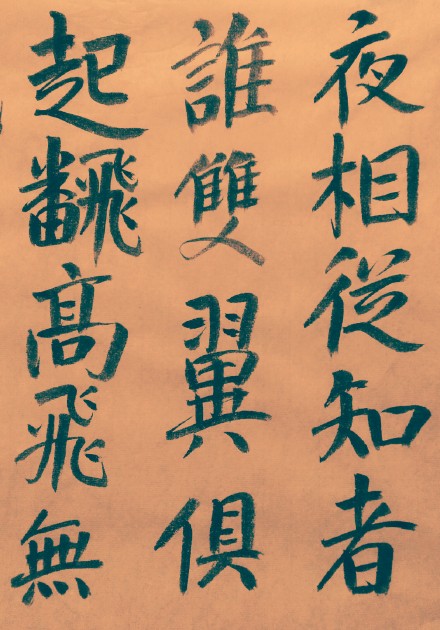 夜相從知者
誰雙翼俱
起翻高飛無